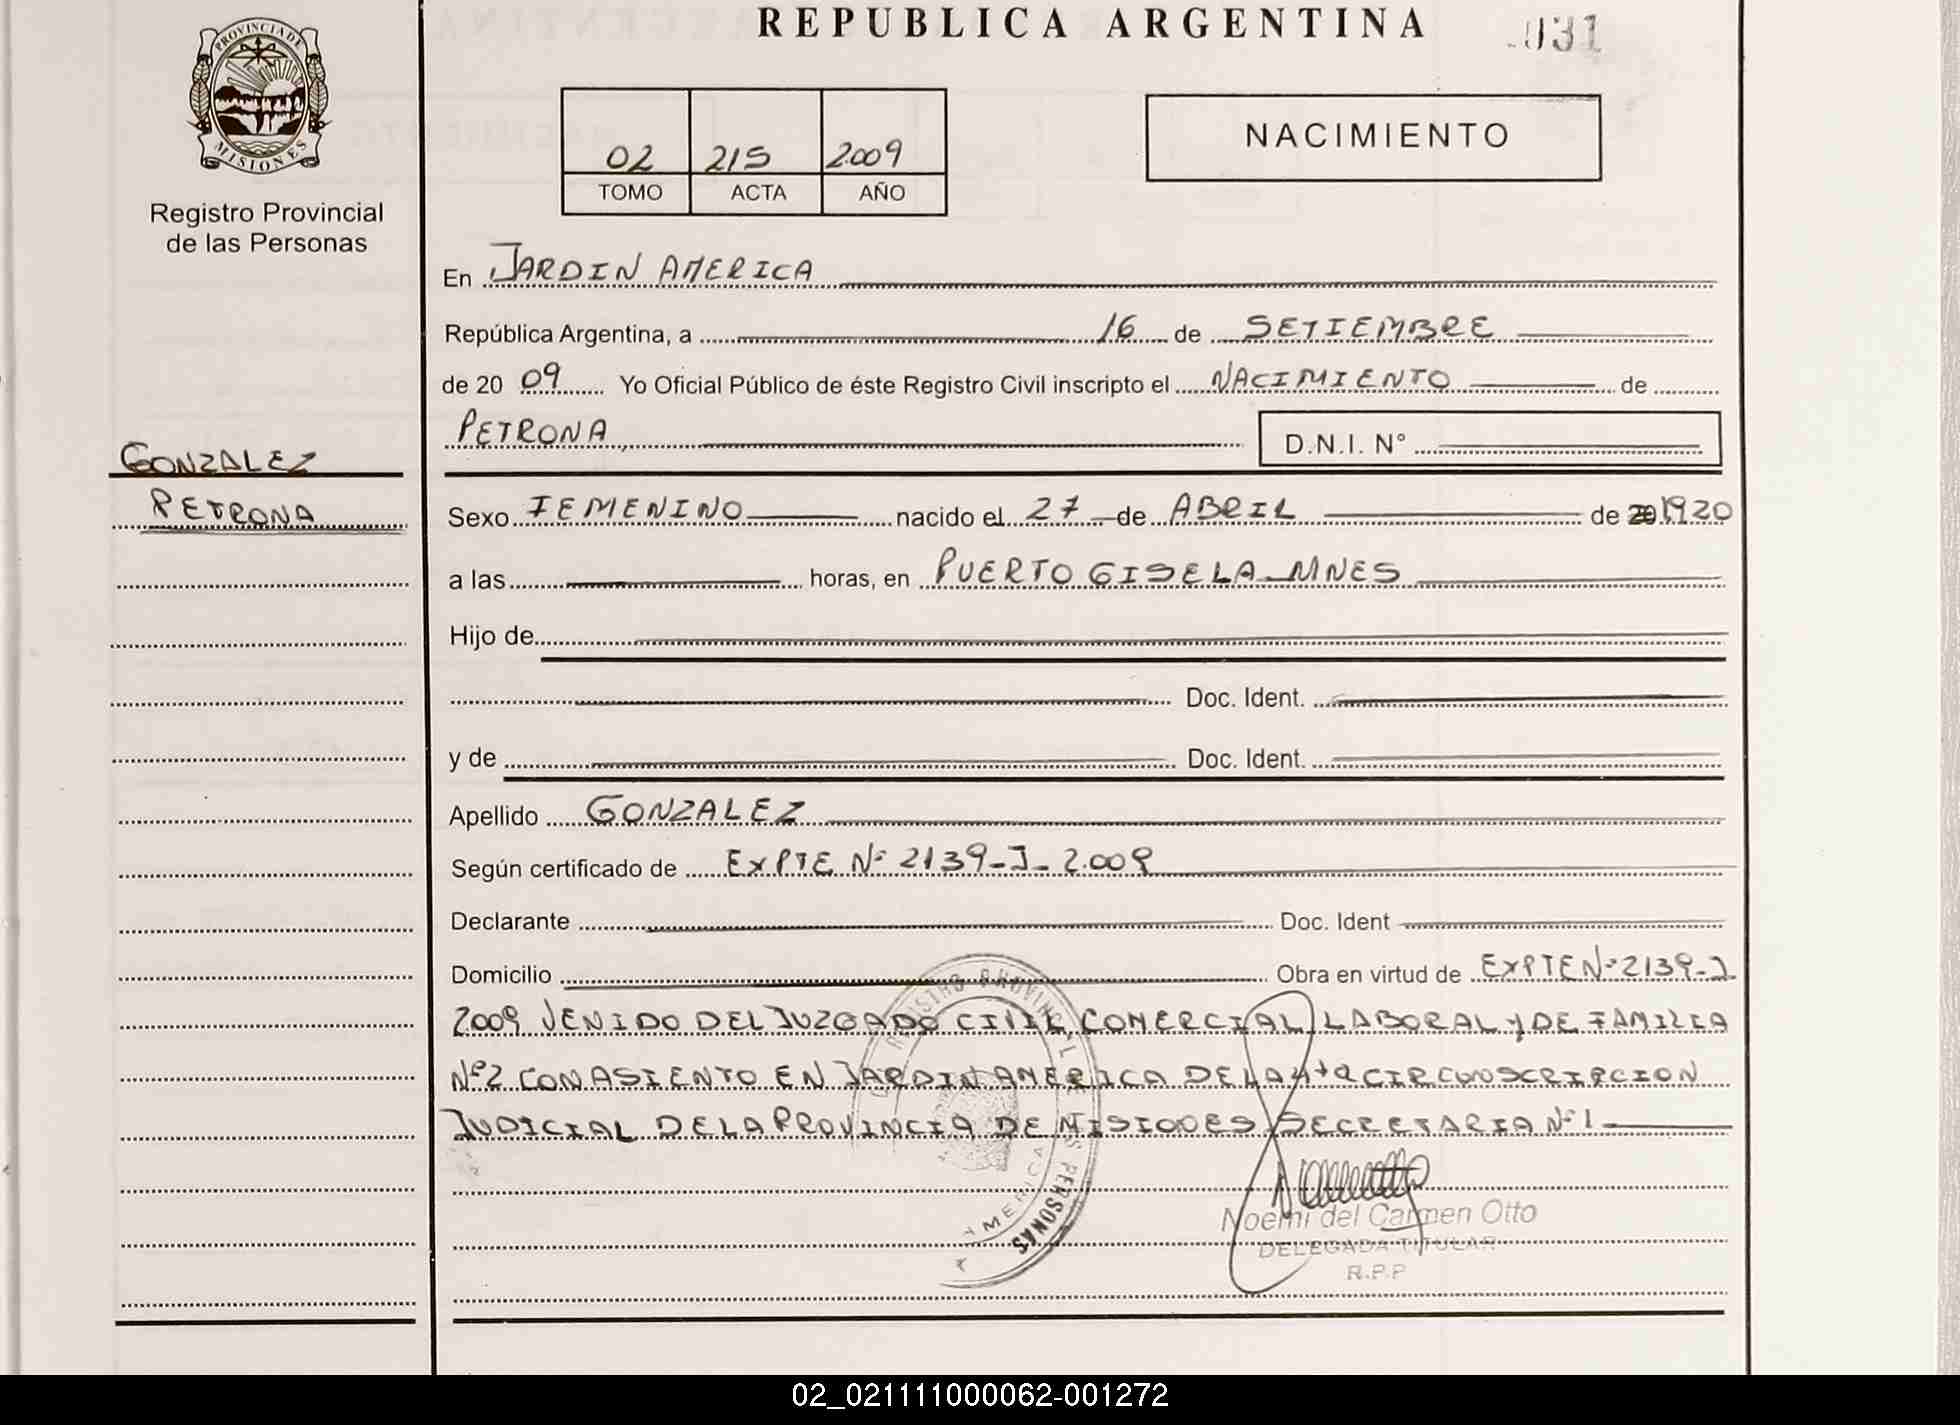 REPUBLICA ARGENTINA
031
PROVINCIA DE
MISIONES
Registro Provincial
de las Personas
02 215 2009
TOMO ACTA AÑO
NACIMIENTO
En JARDIN AMERICA
República Argentina, a 16 de SETIEMBRE
de 20 09 Yo Oficial Público de éste Registro Civil inscripto el NACIMIENTO de
PETRONA D.N.I. N°
GONZALEZ
PETRONA
Sexo FEMENINO nacido el 27 de ABRIL de 20 1920
a las horas, en PUERTO GISELA-MNES
Hijo de
Doc. Ident.
y de Doc. Ident.
Apellido GONZALEZ
Según certificado de EXPTE Nº 2139-J-2.009
Declarante Doc. Ident
Domicilio Obra en virtud de EXPTE Nº 2139-J-
2009 VENIDO DEL JUZGADO CIVIL, COMERCIAL, LABORAL Y DE FAMILIA
Nº2 CON ASIENTO EN JARDIN AMERICA DE LA 4ta CIRCUNSCRIPCION
JUDICIAL DE LA PROVINCIA DE MISIONES SECRETARIA Nº1
Noemi del Carmen Otto
DELEGADA TITULAR
R.P.P
02_021111000062-001272